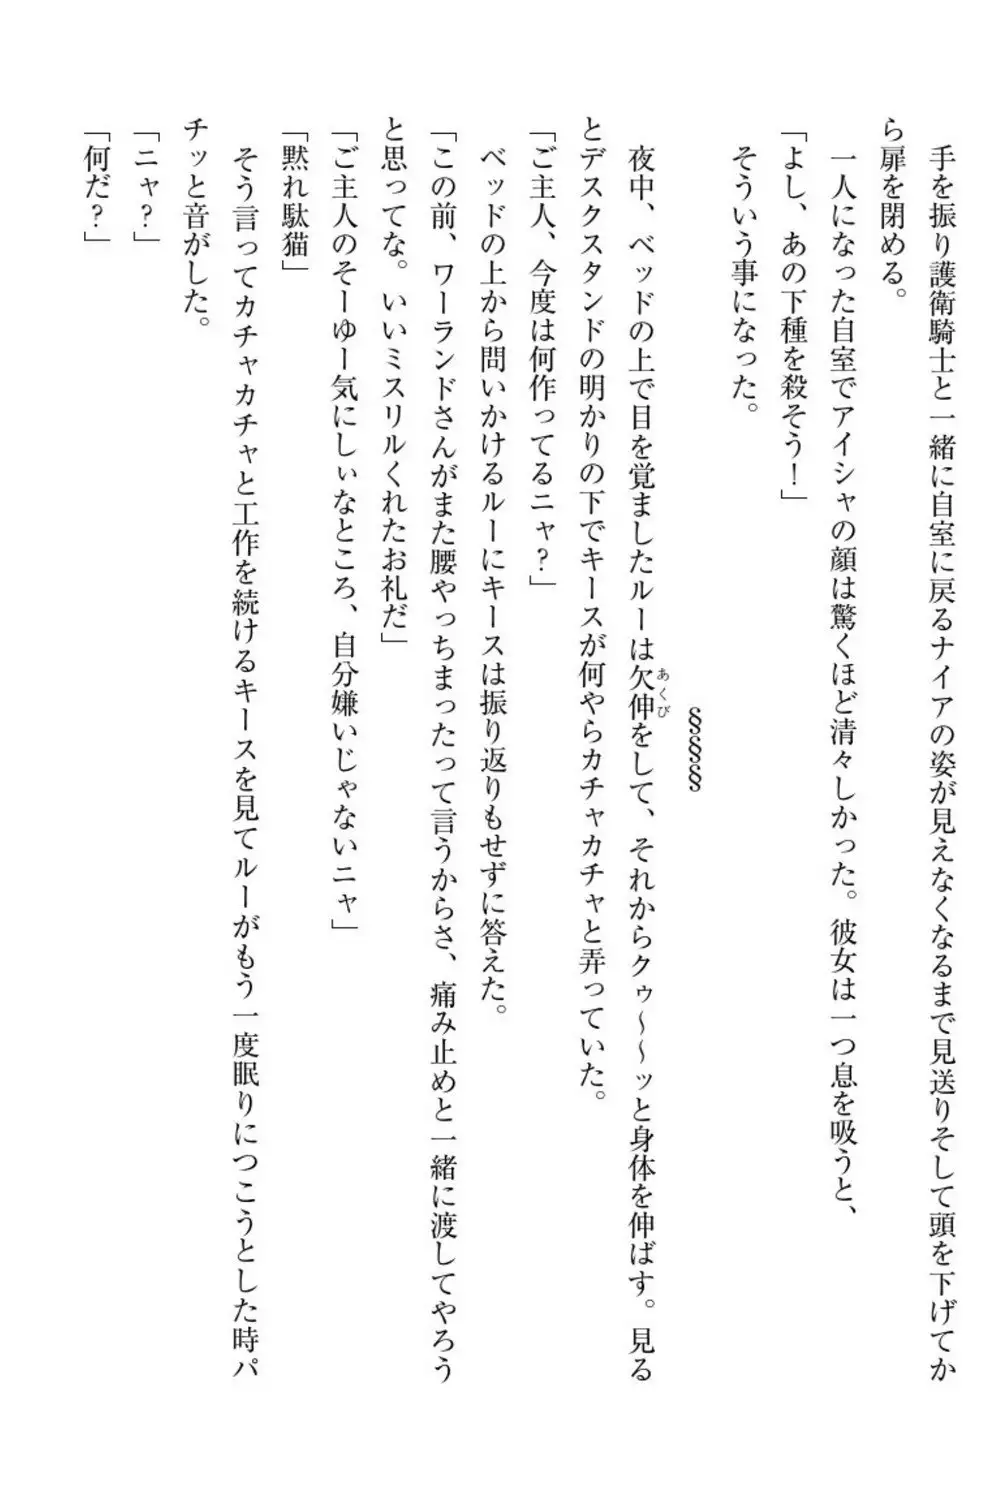 手を振り護衛騎士と一緒に自室に戻るナイアの姿が見えなくなるまで見送りそして頭を下げてか
ら扉を閉める。
　一人になった自室でアイシャの顔は驚くほど清々しかった。彼女は一つ息を吸うと、
「よし、あの下種を殺そう！」
　そういう事になった。
§§§
　夜中、ベッドの上で目を覚ましたルーは欠伸をして、それからクゥ～～ッと身体を伸ばす。見る
あくび
とデスクスタンドの明かりの下でキースが何やらカチャカチャと弄っていた。
「ご主人、今度は何作ってるニャ？」
　ベッドの上から問いかけるルーにキースは振り返りもせずに答えた。
「この前、ワーランドさんがまた腰やっちまったって言うからさ、痛み止めと一緒に渡してやろう
と思ってな。いいミスリルくれたお礼だ」
「ご主人のそーゆー気にしぃなところ、自分嫌いじゃないニャ」
「黙れ駄猫」
　そう言ってカチャカチャと工作を続けるキースを見てルーがもう一度眠りにつこうとした時パ
チッと音がした。
「ニャ？」
「何だ？」